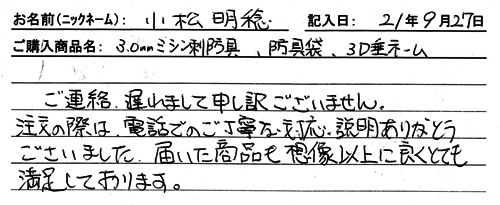 お名前(ニックネーム): 小松明稔 記入日: 21年9月27日
ご購入商品名: 3.0mmミシン刺防具、防具袋、3D垂ネーム
ご連絡、遅れまして申し訳ございません。
注文の際は、電話でのご丁寧な対応・説明ありがとう
ございました。届いた商品も想像以上に良くとても
満足しております。